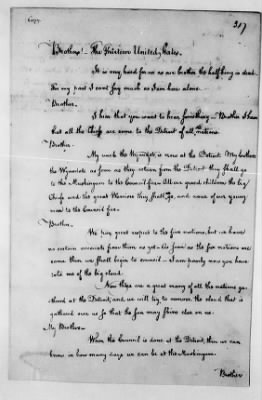 Copy.
317
Brothers! The Thirteen United States.
It is very hard for us as our brother the half king is dead.
For my part I cant say much as I am here alone.
Brother.
I hear that you want to hear something. Brother I hear
that all the Chiefs are come to the Detroit of all nations.
Brother.
My uncle the Wyandots is now at the Detroit. My brothers
the Wyandots as soon as they return from the Detroit they shall go
to the Muskingum to the Council fire. All our grand children the big
Chiefs and the great Warriors they shall go, and none of our young
men to the Council fire.
Brother.
We pay great respect to the five nations, but we have
no certain accounts from them as yet. As soon as the five nations are
come then we shall begin to council. I am sorely now you have
told me of the big cloud.
Now there are a great many of all the nations ga-
thered at the Detroit, and we will try to remove the cloud that is
gathered over us so that the sun may shine clear on us.
My Brother.
When the Council is done at the Detroit, then we can
know in how many days we can be at the Muskingum.
Brother